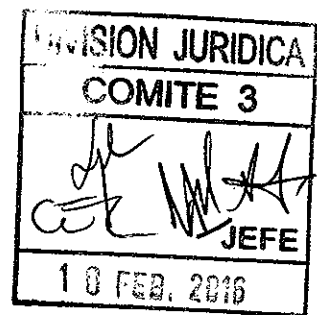 DIVISION JURIDICA
COMITE 3
JEFE
10 FEB. 2016